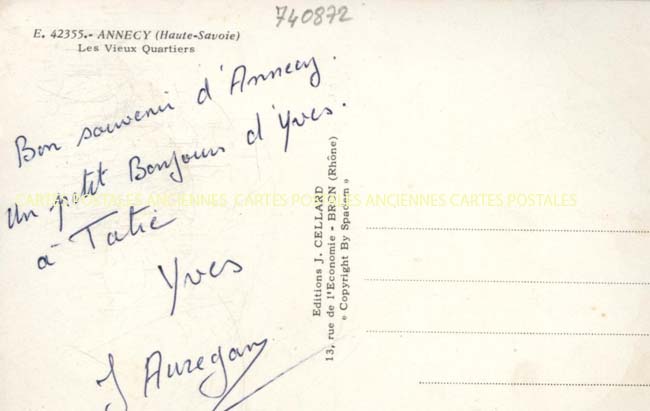 740872
E. 42355.- ANNECY (Haute-Savoie)
Les Vieux Quartiers
Bon souvenir d'Annecy.
un p'tit Bonjour d'Yves.
à Tatie
Yves
J Auregan
Editions J. CELLARD
13, rue de l'Economie - BRON (Rhône)
« Copyright By Spadem »
CARTES POSTALES ANCIENNES CARTES POSTALES ANCIENNES CARTES POSTALES